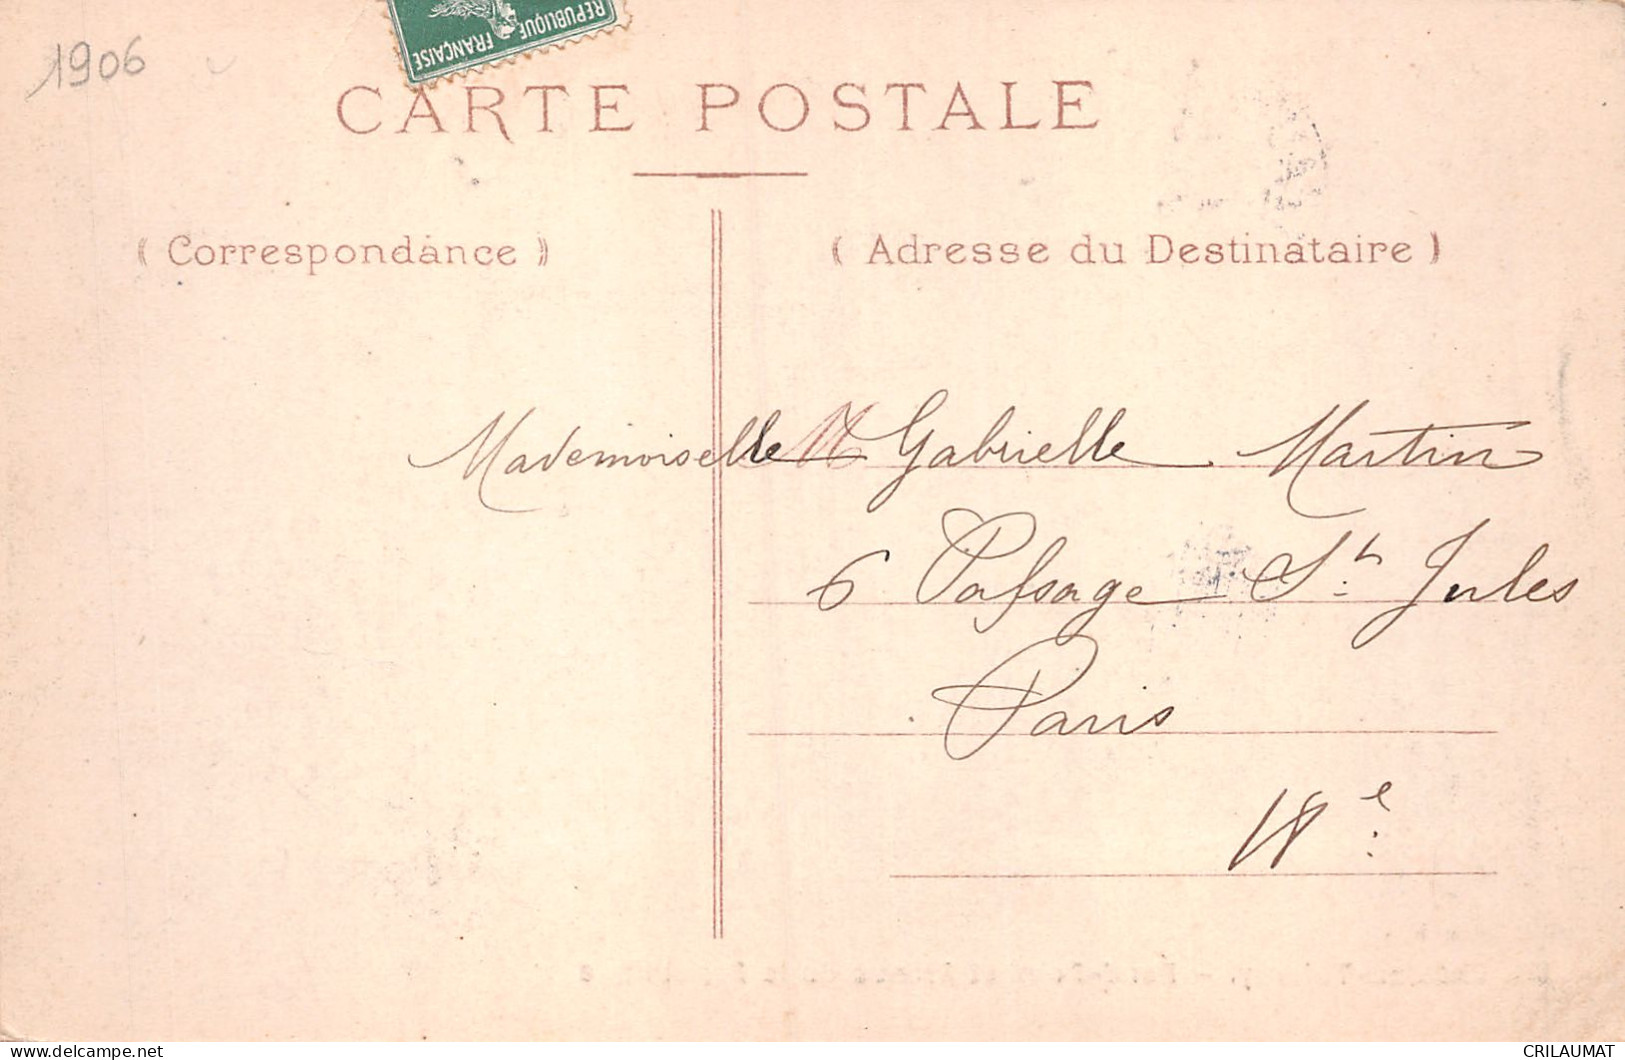 1906
REPUBLIQUE FRANÇAISE
CARTE POSTALE
( Correspondance )
( Adresse du Destinataire )
Mademoiselle M Gabrielle Martin
6 Passage St Jules
Paris
18e
delcampe.net
CRILAUMAT